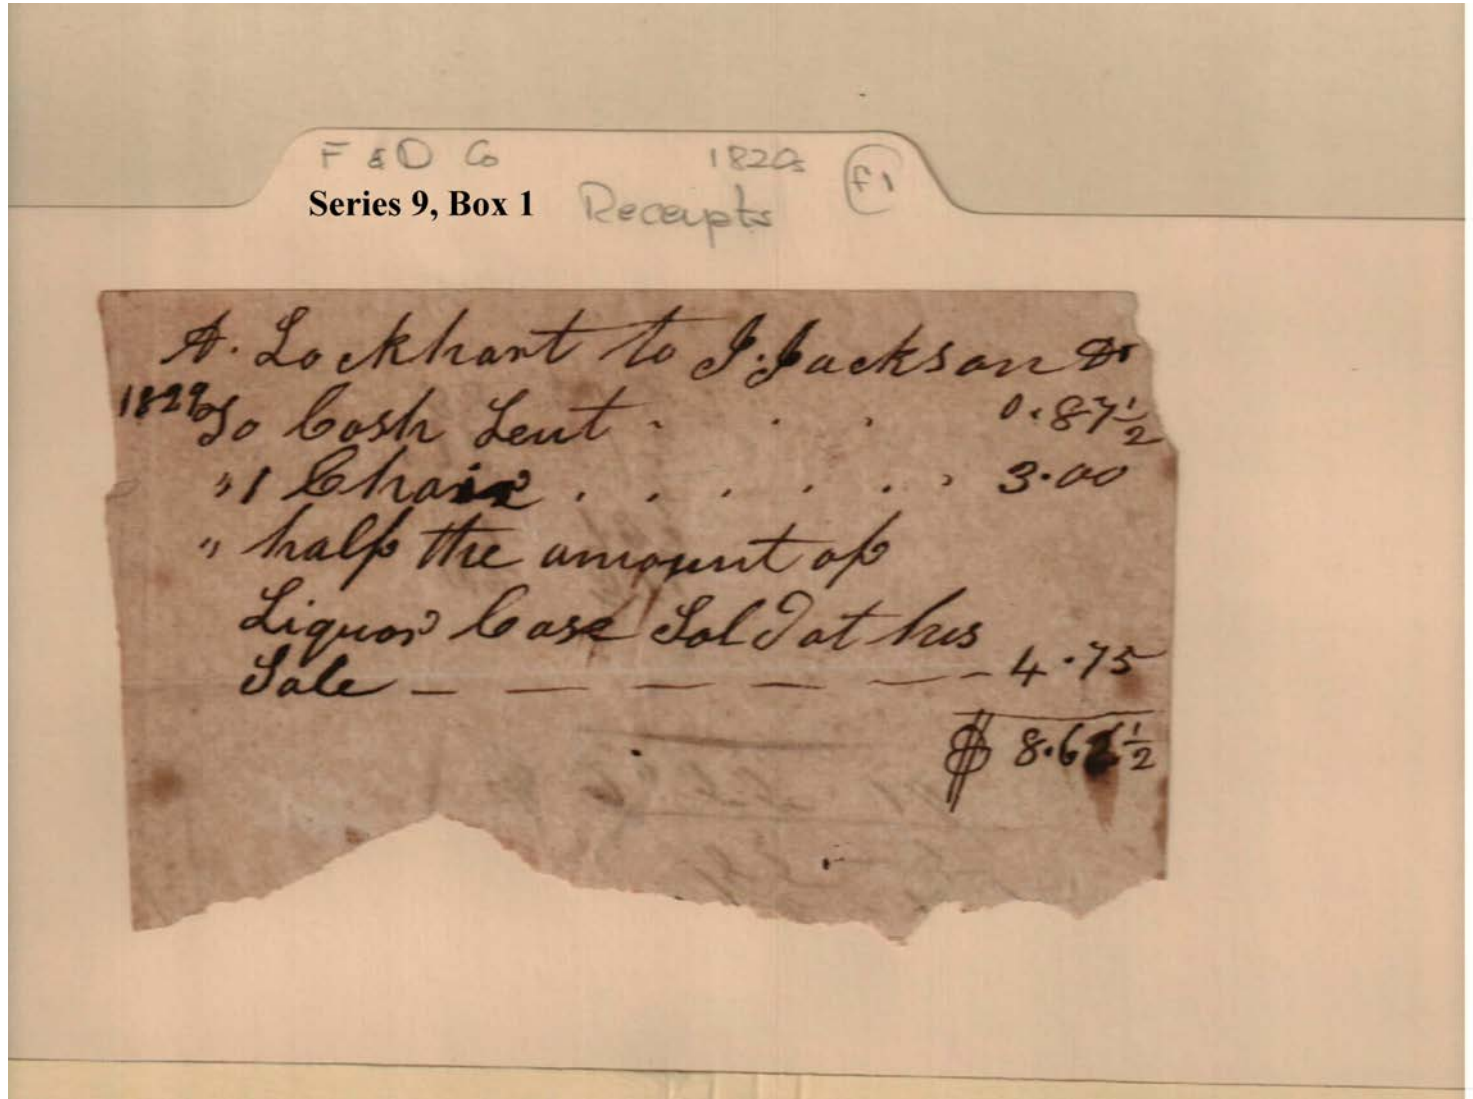 F & D Co 1820s F1
Series 9, Box 1 Receipts
A. Lockhart to J. Jackson Dr
1829 To Cash Lent . . . 0.87½
" 1 Chair . . . . . . . 3.00
" half the amount of
Liquor Case Sold at his
Sale — — — — — - 4.75
$ 8.62½